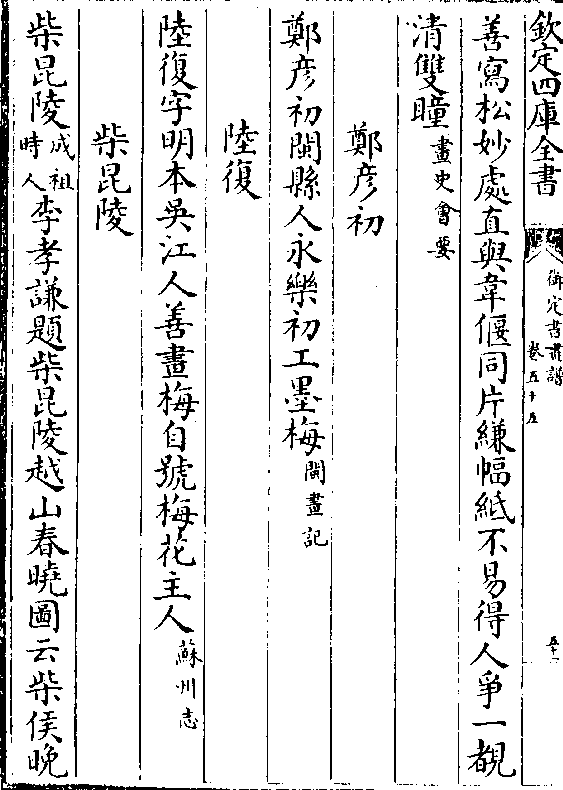 欽定四庫全書
御定書畫譜
卷五十五
五十一
善寫松妙處直與韋偃同片縑幅紙不易得人爭一覩
清雙瞳畫史會要
鄭彥初
鄭彥初閩縣人永樂初工墨梅閩畫記
陸復
陸復字明本吳江人善畫梅自號梅花主人蘇州志
柴昆陵
柴昆陵成祖時人李孝謙題柴昆陵越山春曉圖云柴侯晚